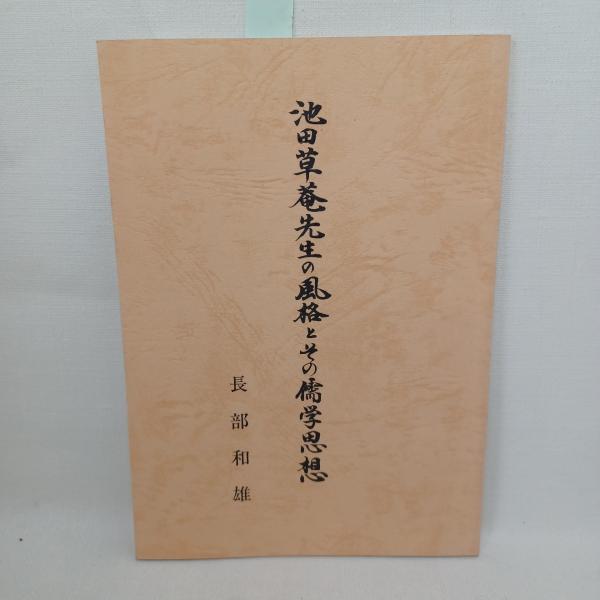 池田草菴先生の風格とその儒学思想
長部和雄